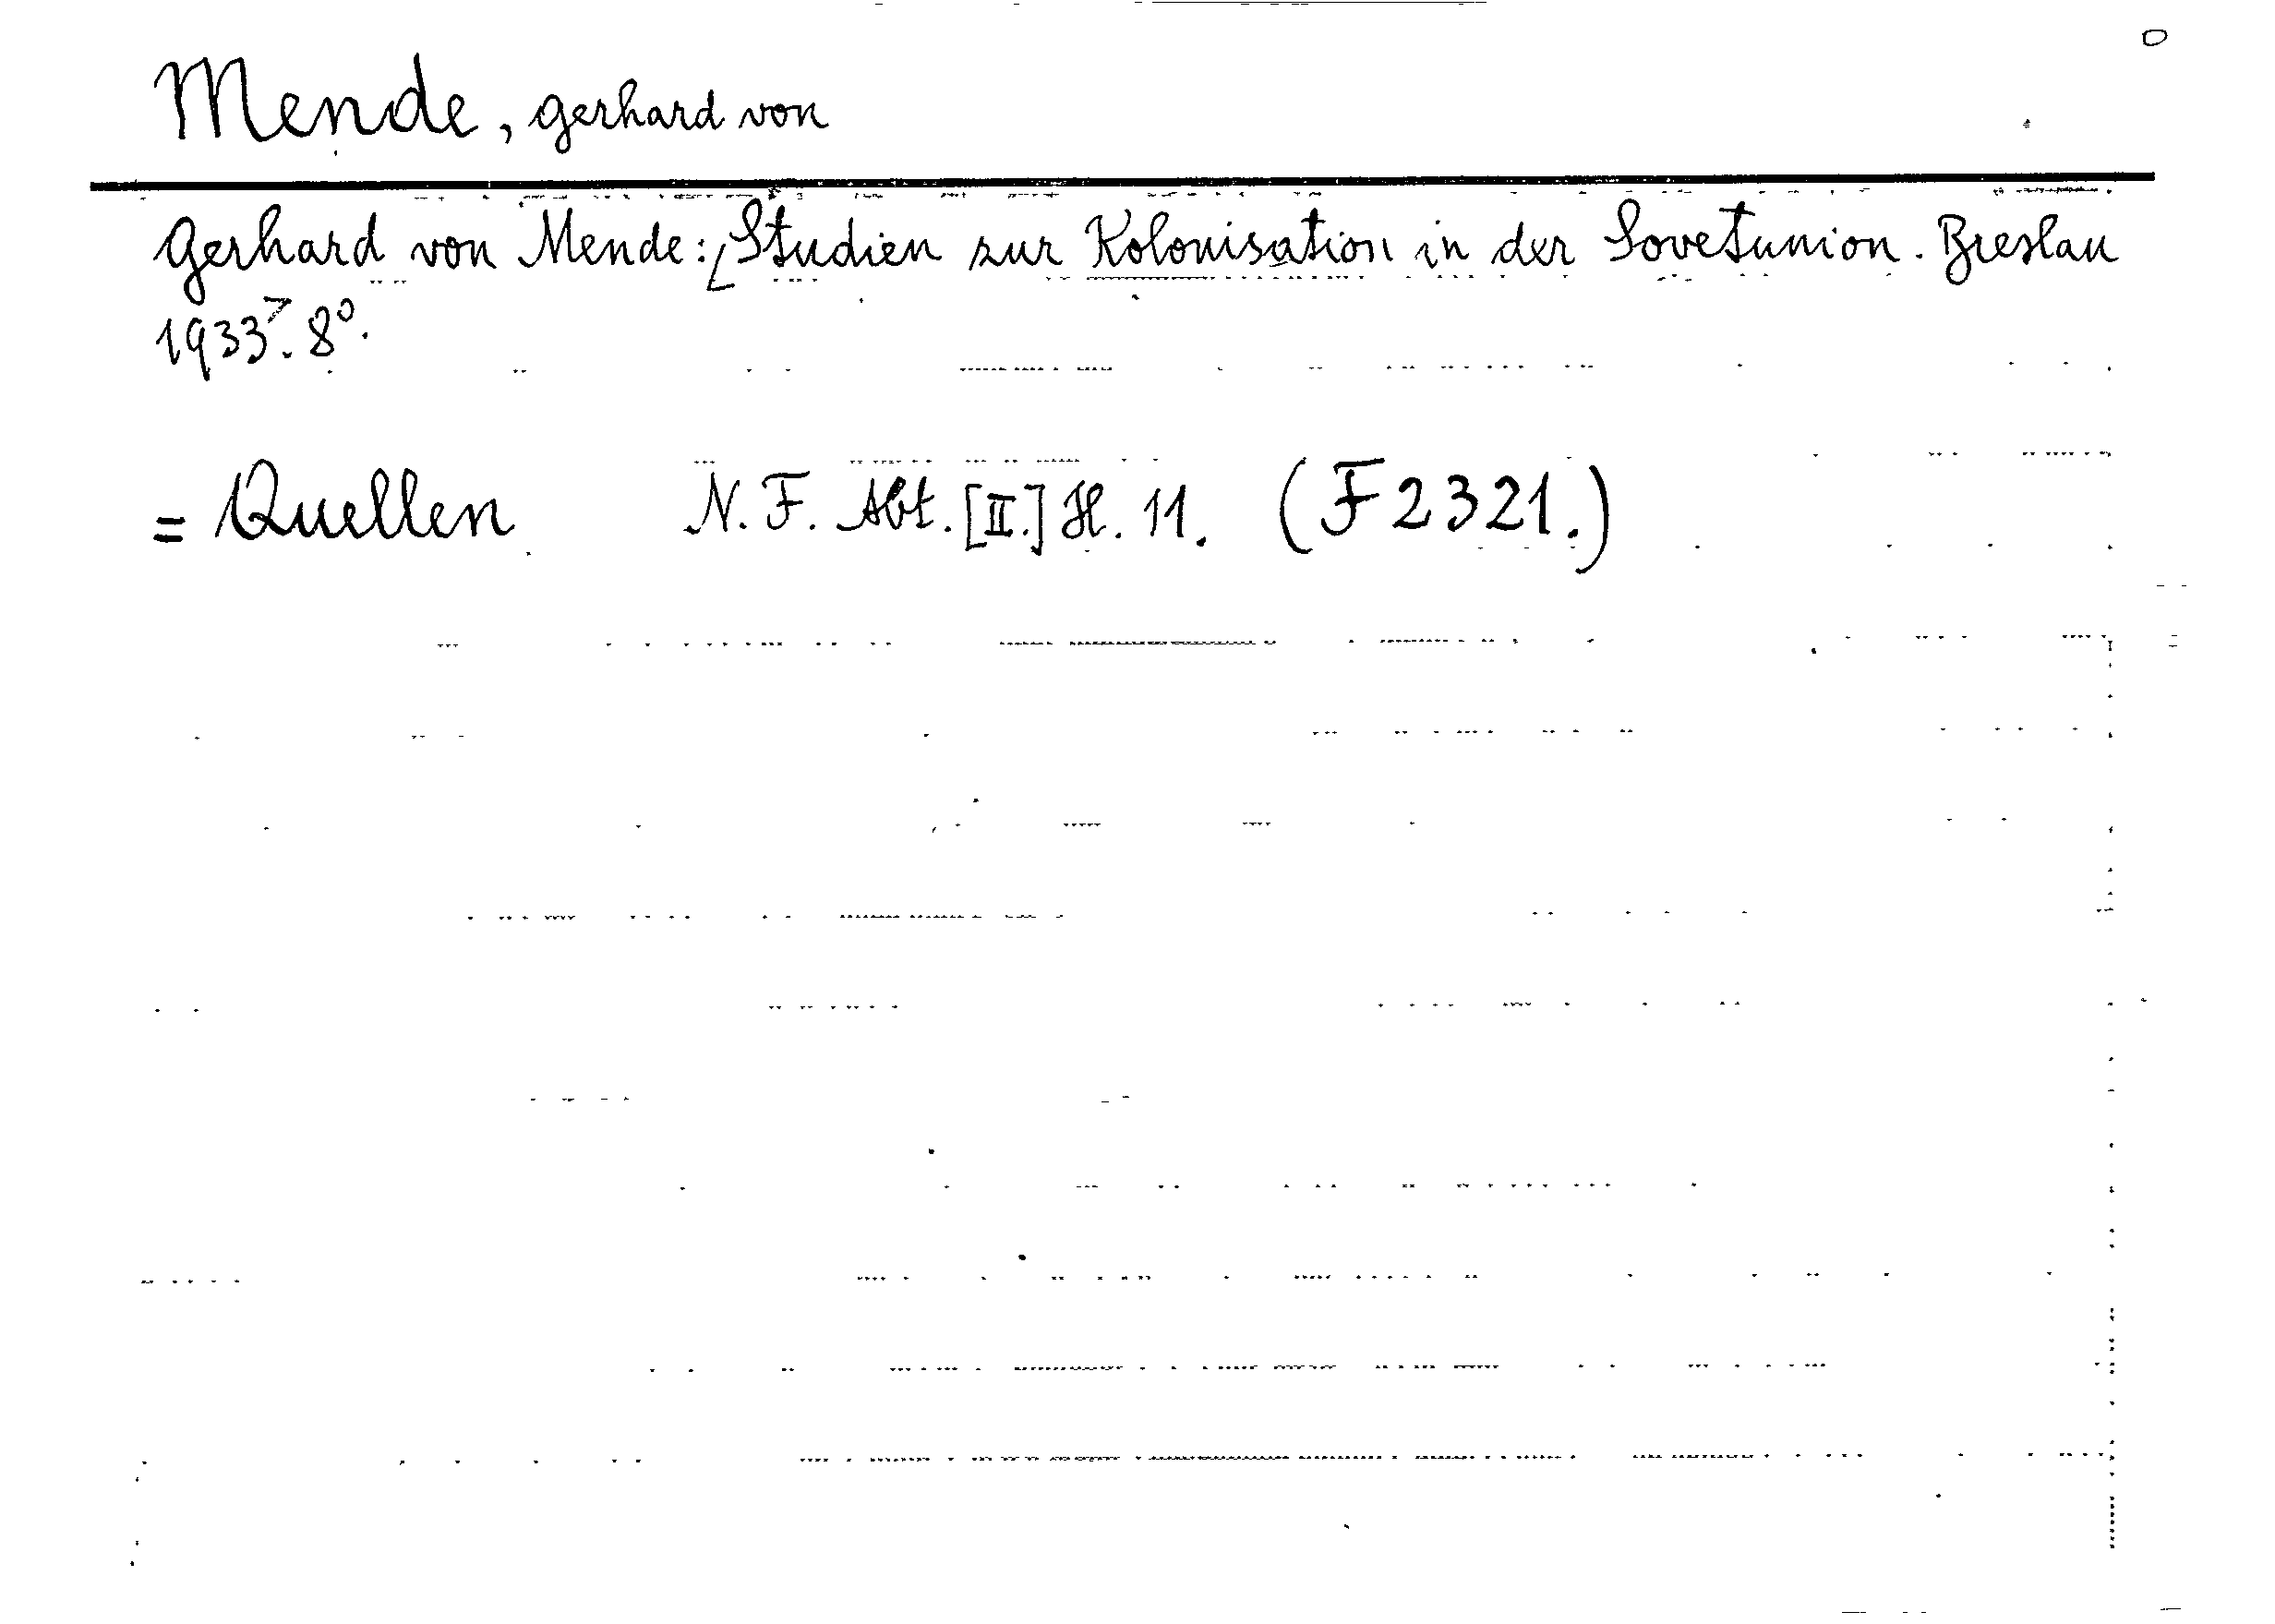 Mende, Gerhard von
Gerhard von Mende: Studien zur Kolonisation in der Sovetunion. Breslau
1933. 8°.
= Quellen N. F. Abt. [II.] H. 11. (F 2321.)